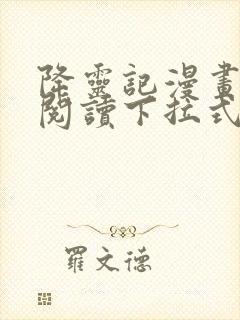 降靈記漫畫
閱讀下拉式
羅文德